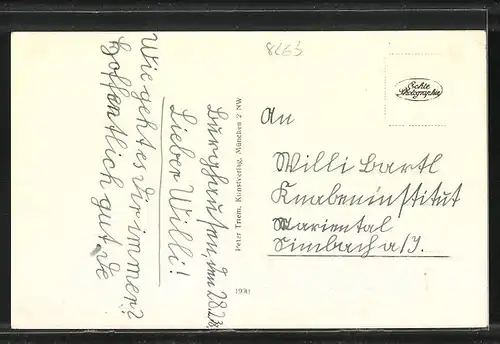 8263
Echte
Photographie
Burghausen, den 28.2.
Lieber Willi!
Wie geht es Dir immer?
Hoffentlich gut. Ie
Peter Triem, Kunstverlag, München 2 NW
An
Willi Bartl
Knabeninstitut
Mariental
Simbach a/J.